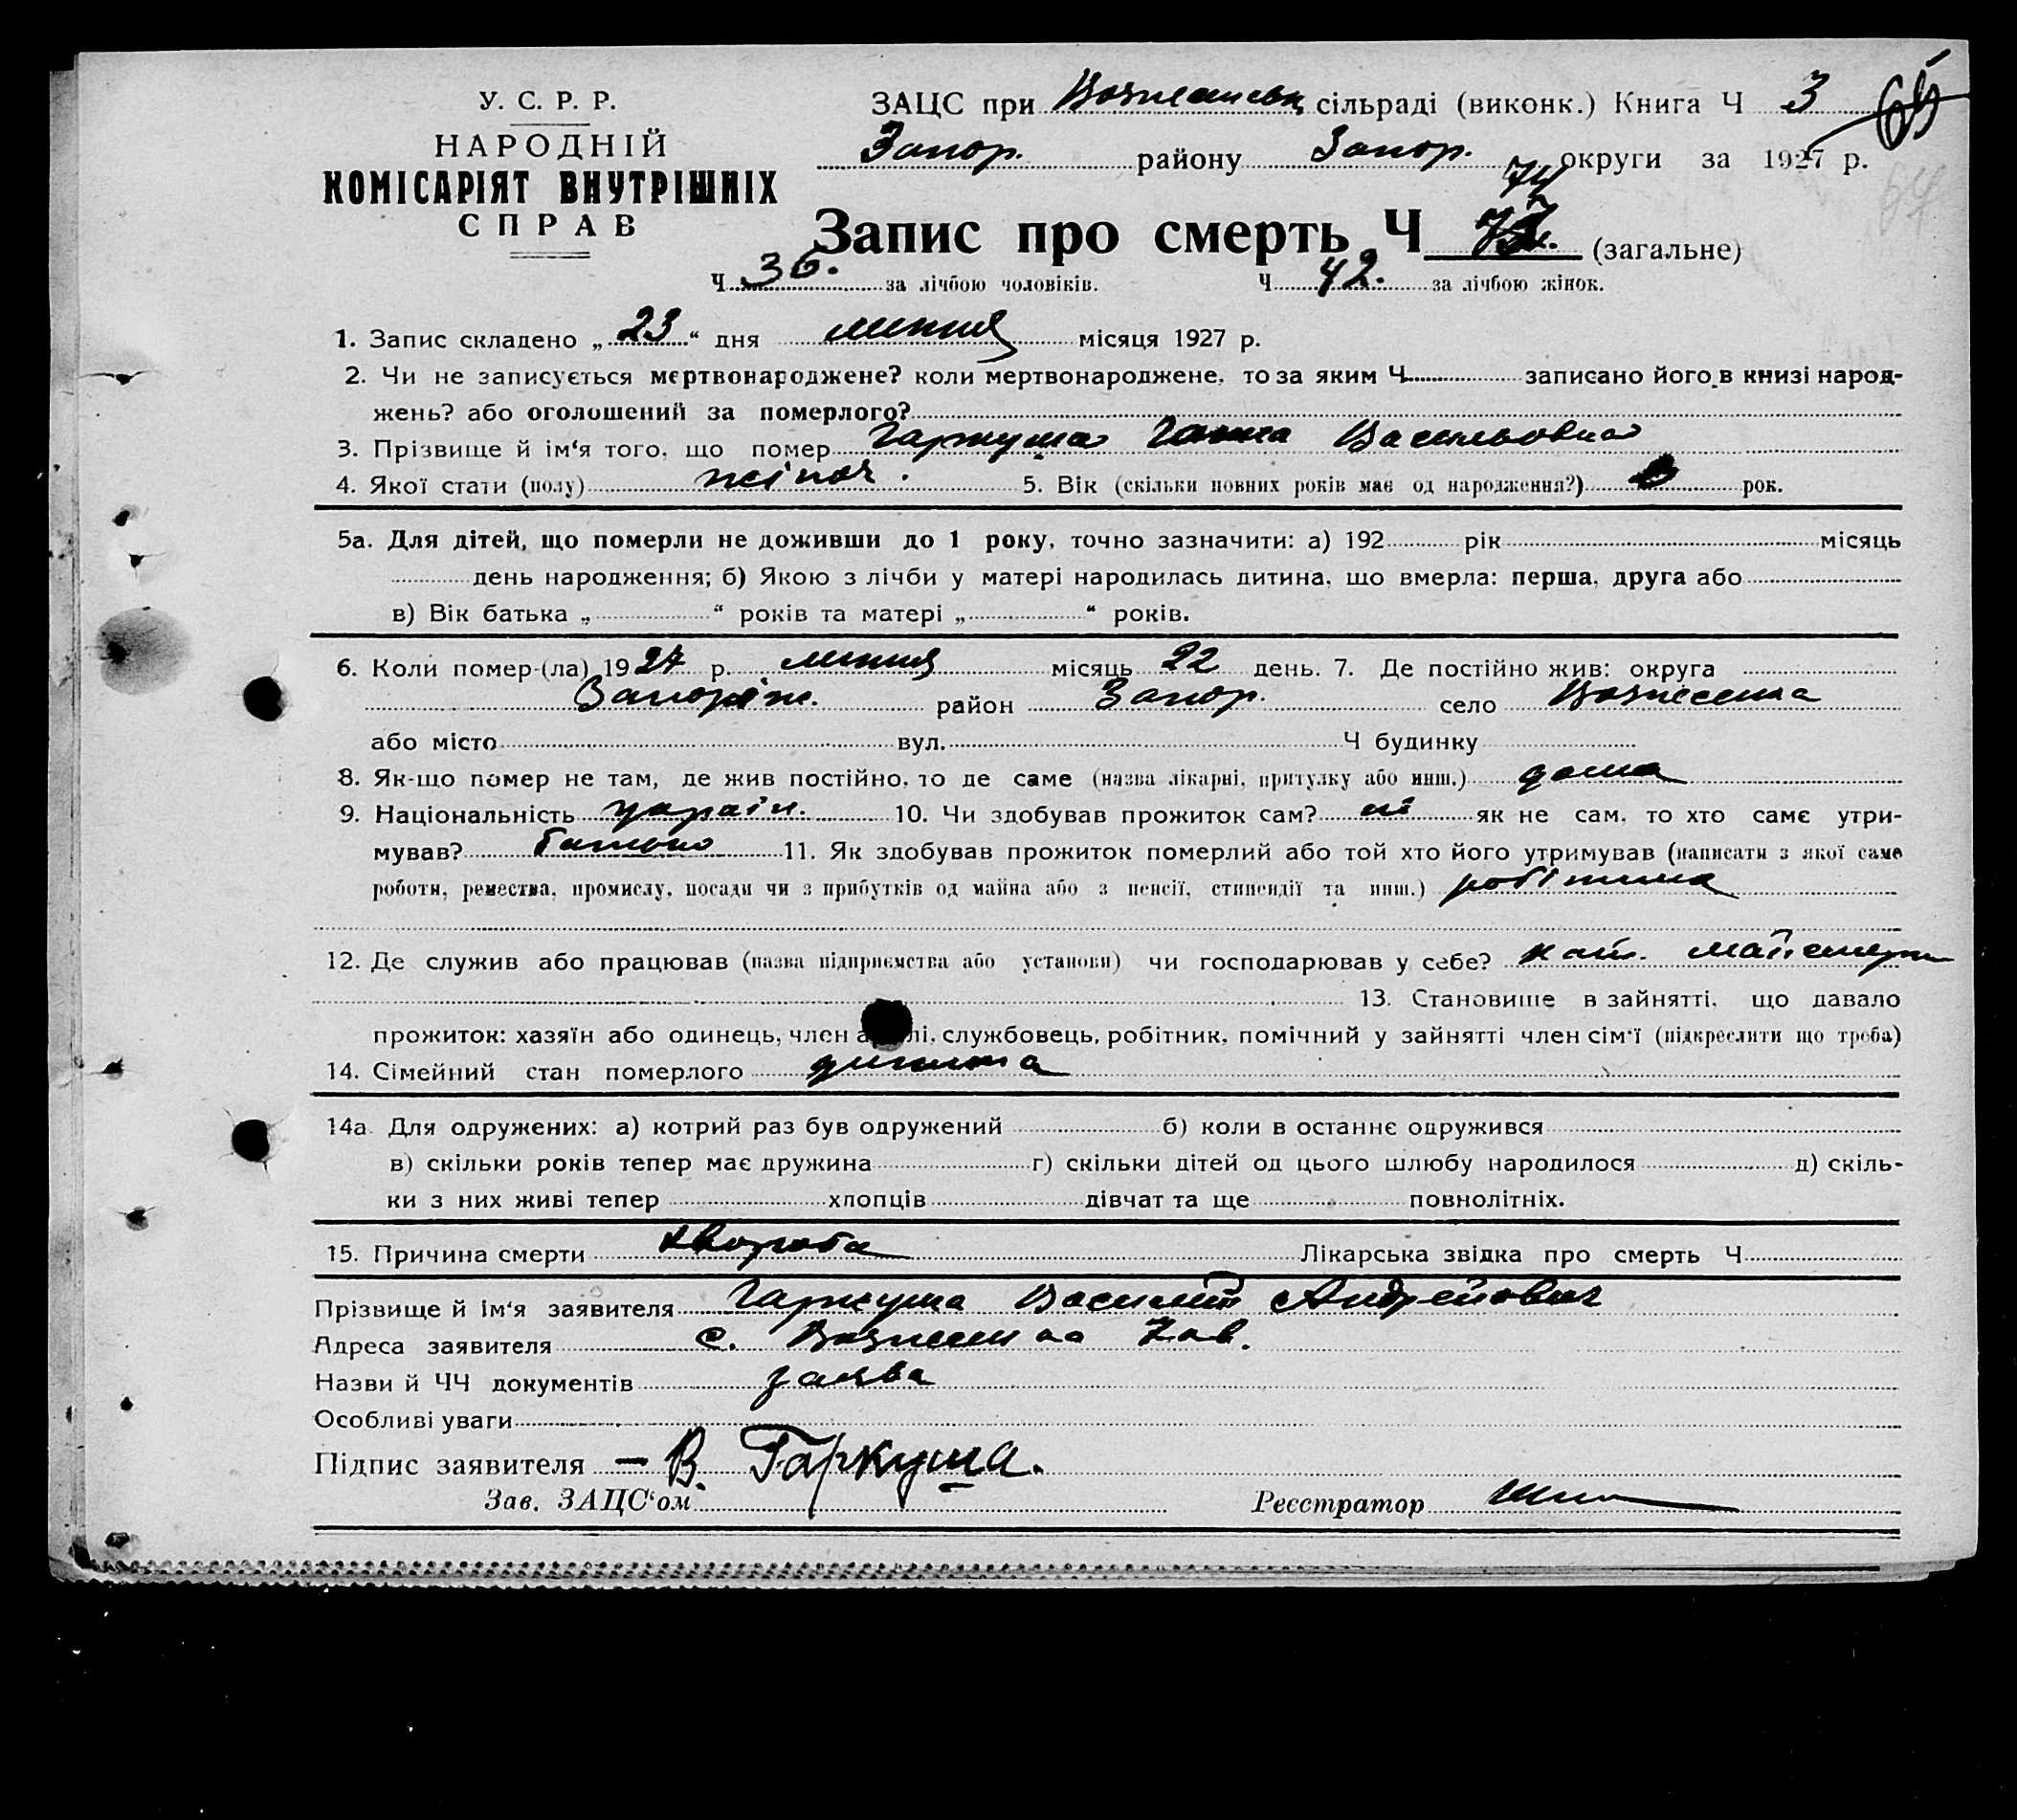 У. С. Р. Р.
НАРОДНІЙ
КОМІСАРІЯТ ВНУТРІШНІХ
СПРАВ
ЗАЦС при Вознесенськ сільраді (виконк.) Книга Ч 3 65
Запор. району Запор. округи за 1927 р.
64
74
Запис про смерть Ч (загальне)
Ч 36. за лічбою чоловіків. Ч 42. за лічбою жінок.
1. Запис складено „23“ дня липня місяця 1927 р.
2. Чи не записується мертвонароджене? коли мертвонароджене, то за яким Ч записано його в книзі народ-
жень? або оголошений за померлого?
3. Прізвище й ім‘я того, що помер Гаркуша Ганна Васильовна
4. Якої стати (полу) жіноч. 5. Вік (скільки повних років має од народження?) рок.
5а. Для дітей, що померли не доживши до 1 року, точно зазначити: а) 192 рік місяць
день народження; б) Якою з лічби у матері народилась дитина, що вмерла: перша, друга або
в) Вік батька „ “ років та матері „ “ років.
6. Коли помер-(ла) 1927 р. липня місяць 22 день. 7. Де постійно жив: округа
Запоріж. район Запор. село Вознесенка
або місто вул. Ч будинку
8. Як-що помер не там, де жив постійно, то де саме (назва лікарні, притулку або инш.) дома
9. Національність україн. 10. Чи здобував прожиток сам? ні як не сам, то хто саме утри-
мував? батько 11. Як здобував прожиток померлий або той хто його утримував (написати з якої саме
роботи, ремества, промислу, посади чи з прибутків од майна або з пенсії, стипендії та инш.) робітник
12. Де служив або працював (назва підприємства або установи) чи господарював у себе? майстерн
13. Становище в зайнятті, що давало
прожиток: хазяїн або одинець, член а лі, службовець, робітник, помічний у зайнятті член сім‘ї (підкреслити що треба)
14. Сімейний стан померлого дитина
14а. Для одружених: а) котрий раз був одружений б) коли в останнє одружився
в) скільки років тепер має дружина г) скільки дітей од цього шлюбу народилося д) скіль-
ки з них живі тепер хлопців дівчат та ще повнолітніх.
15. Причина смерти хвороба Лікарська звідка про смерть Ч
Прізвище й ім‘я заявителя Гаркуша Василий Андрейович
Адреса заявителя с. Вознесенка
Назви й ЧЧ документів заява
Особливі уваги
Підпис заявителя – В. Гаркуша.
Зав. ЗАЦС‘ом Реєстратор